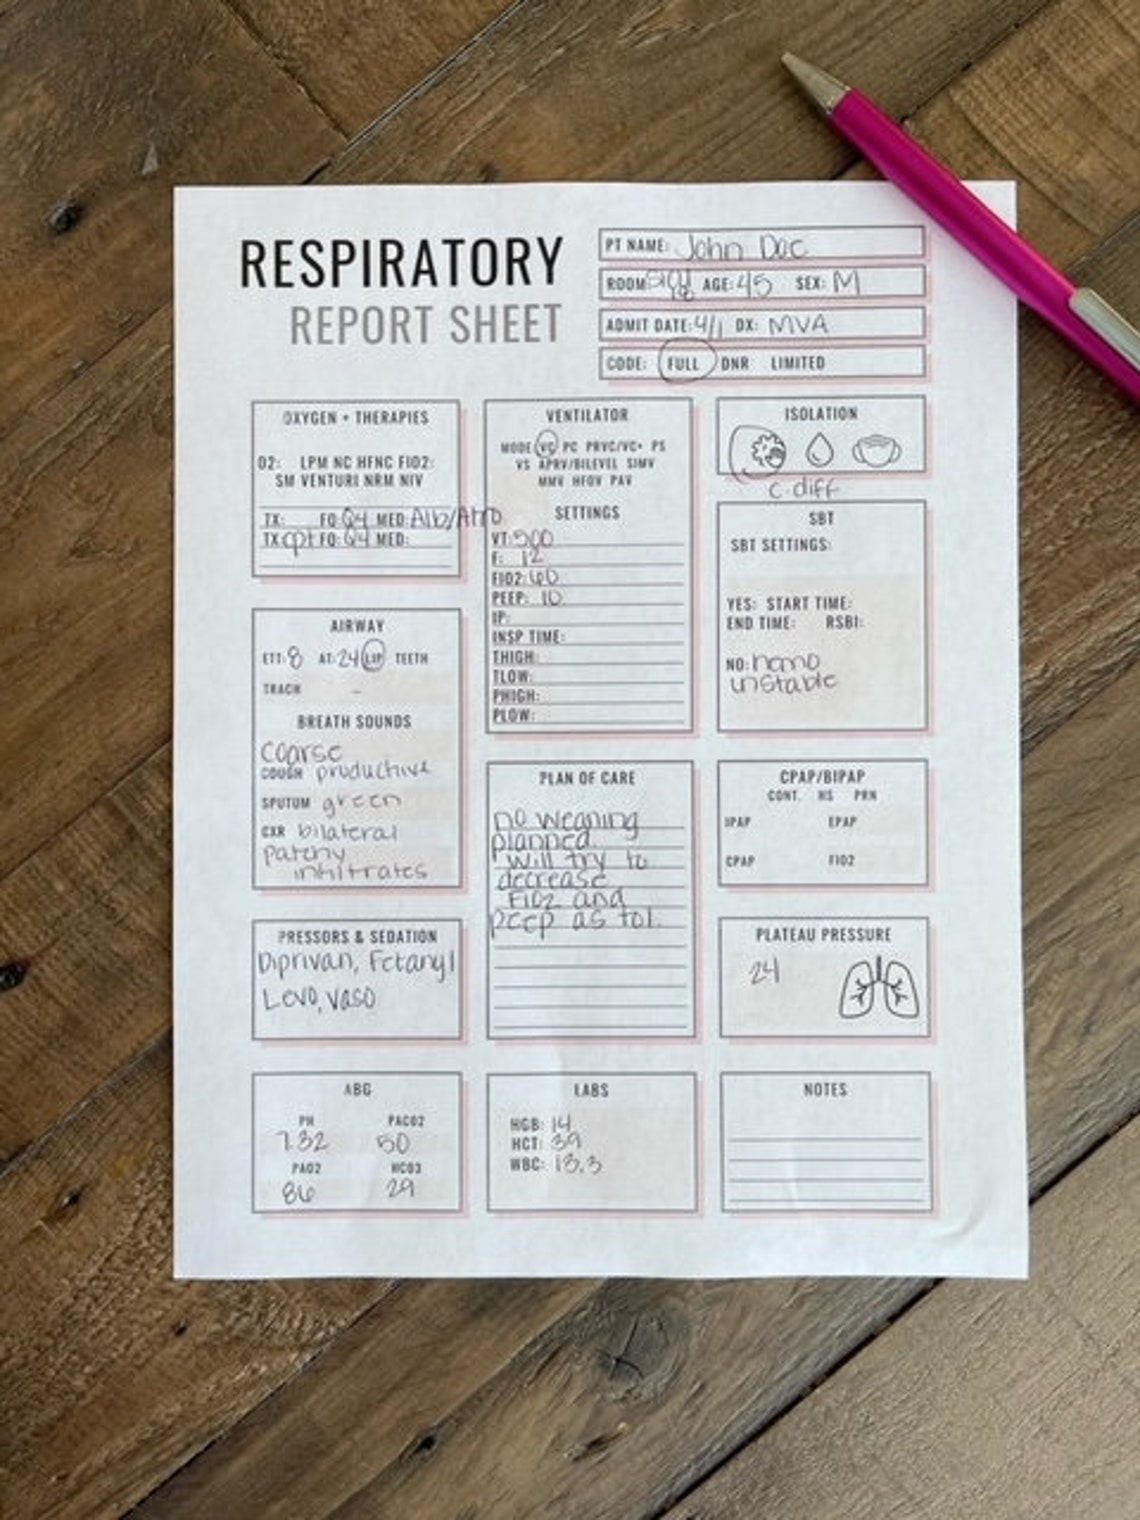 RESPIRATORY
REPORT SHEET
PT NAME: John Doe
ROOM: SICU 18 AGE: 45 SEX: M
ADMIT DATE: 4/1 DX: MVA
CODE: FULL DNR LIMITED
OXYGEN + THERAPIES
O2: LPM NC HFNC FIO2:
SM VENTURI NRM NIV
TX: FQ: Q4 MED: Alb/Atro
TX: cpt FQ: Q4 MED:
AIRWAY
ETT: 8 AT: 24 LIP TEETH
TRACH -
BREATH SOUNDS
coarse
COUGH productive
SPUTUM green
CXR bilateral
patchy
infiltrates
PRESSORS & SEDATION
Diprivan, Fetanyl
Levo, vaso
ABG
PH PACO2
7.32 50
PAO2 HCO3
86 29
VENTILATOR
MODE: VC PC PRVC/VC+ PS
VS APRV/BILEVEL SIMV
MMV HFOV PAV
SETTINGS
VT: 500
F: 12
FIO2: 60
PEEP: 10
IP:
INSP TIME:
THIGH:
TLOW:
PHIGH:
PLOW:
PLAN OF CARE
no weaning
planned.
will try to
decrease
FiO2 and
peep as tol.
LABS
HGB: 14
HCT: 39
WBC: 13.3
ISOLATION
c. diff
SBT
SBT SETTINGS:
YES: START TIME:
END TIME: RSBI:
NO: hemo
unstable
CPAP/BIPAP
CONT. HS PRN
IPAP EPAP
CPAP FIO2
PLATEAU PRESSURE
24
NOTES